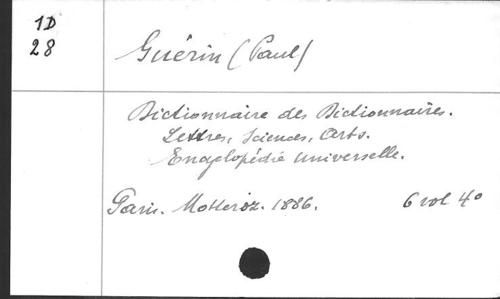 1D
28
Guérin (Paul)
Dictionnaire des Dictionnaires.
Lettres, Sciences, Arts.
Encyclopédie universelle.
Paris. Motteroz. 1886. 6 vol 4°